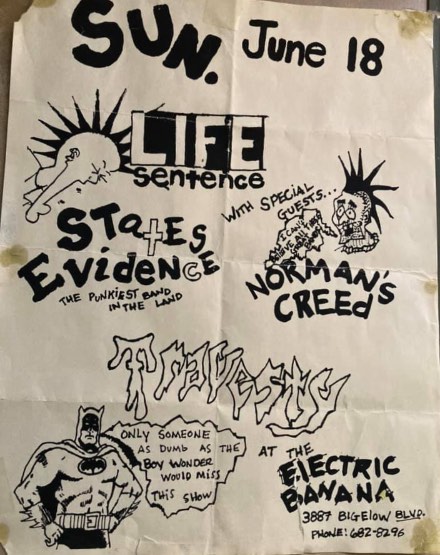 SUN. June 18
LIFE
Sentence
WITH SPECIAL
GUESTS...
STatES
EvidENCE
THE PUNKIEST BAND
IN THE LAND
NORMAN'S
CREEd
Travesty
ONLY SOMEONE
AS DUMB AS THE
BOY WONDER
WOULD MISS
THIS SHOW
AT THE
ElECTRIC
BANANA
3887 BIGElOW BLVD.
PHONE: 682-8296